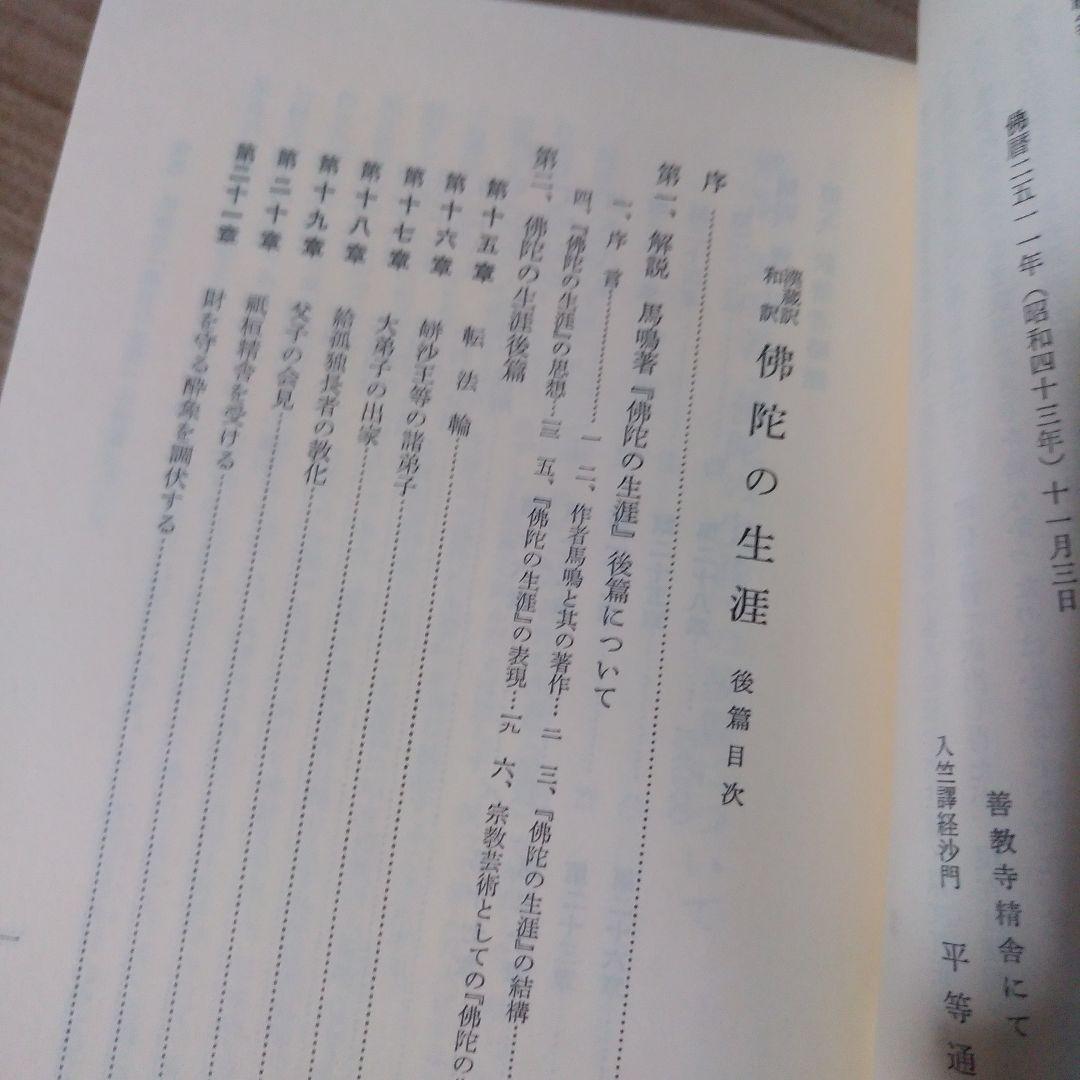 佛暦二五一一年（昭和四十三年）十一月三日
善教寺精舎にて
入竺譯経沙門 平等通
漢蔵訳
和訳
佛陀の生涯 後篇目次
序
第一、解説 馬鳴著『佛陀の生涯』後篇について
一、序言 一 二、作者馬鳴と其の著作 二 三、『佛陀の生涯』の結構
四、『佛陀の生涯』の思想 三 五、『佛陀の生涯』の表現 一九 六、宗教芸術としての『佛陀の
第二、佛陀の生涯後篇
第十五章 転法輪
第十六章 缾沙王等の諸弟子
第十七章 大弟子の出家
第十八章 給孤独長者の教化
第十九章 父子の会見
第二十章 祇桓精舎を受ける
第二十一章 財を守る酔象を調伏する
一